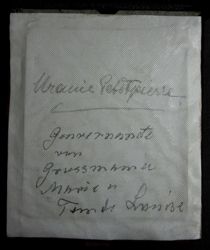 Uranie Petitpierre
Gouvernante
von
Grossmama
Marie u
Tante Louise